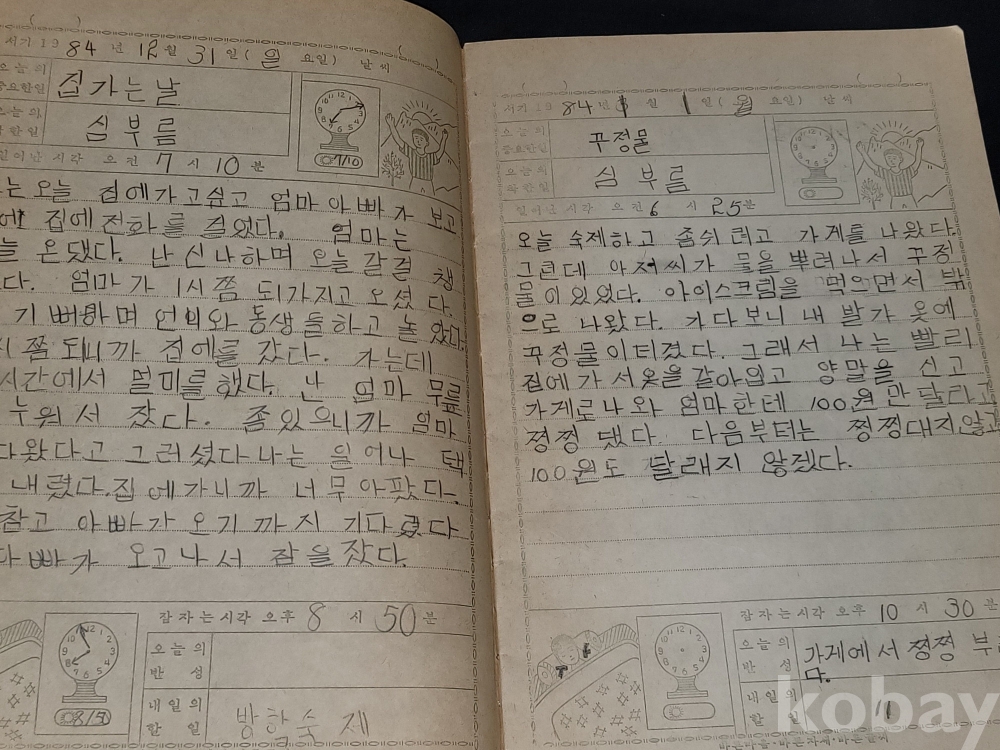 서기 19 84 년 12 월 31 일 ( 월 요일) 날씨
오늘의 중요한일 집가는날
오늘의 착한일 심부름
7/10
일어난 시각 오전 7 시 10 분
는 오늘 집에가고싶고 엄마아빠가 보고
집에전화를 걸었다. 엄마는
늘 온댔다. 난 신나하며 오늘 갈걸 챙
다. 엄마가 1시쯤 되가지고 오셨다.
기뻐하며 언니와 동생들하고 놀았다.
시쯤되니까 집에를 갔다. 가는데
시간에서 멀미를했다. 난 엄마 무릎
누워서 잤다. 좀있으니까 엄마
다왔다고 그러셨다 나는 일어나 택
내렸다.집에가니까 너무아팠다.
참고 아빠가 오기까지 기다렸다
아빠가 오고나서 잠을잤다.
잠자는시각 오후 8 시 50 분
오늘의 반성
내일의 할일 방학숙제
8/50
서기 19 84 년 월 1 일 ( 월 요일) 날씨
오늘의 중요한일 꾸정물
오늘의 착한일 심부름
일어난 시각 오전 6 시 25 분
오늘 숙제하고 좀쉬려고 가게를 나왔다.
그런데 아저씨가 물을 뿌려나서 꾸정
물이있었다. 아이스크림을 먹으면서 밖
으로 나왔다. 가다보니 내 발가 옷에
꾸정물이티겼다. 그래서 나는 빨리
집에가서옷을갈아입고 양말을 신고
가게로나와 엄마한테 100원만달라고
쩡쩡댔다. 다음부터는 쩡쩡대지않고
100원도 달래지 않겠다.
잠자는시각 오후 10 시 30 분
오늘의 반성 가게에서 쩡쩡 부
다.
내일의 할일 11
kobay